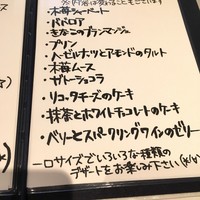 ・木苺シャーベット
・パパロア
・きなこのブランマンジェ
・プリン
・ヘーゼルナッツとアーモンドのタルト
・木苺ムース
・ガトーショコラ
・リコッタチーズのケーキ
・抹茶とホワイトチョコレートのケーキ
・ベリーとスパークリングワインのゼリー
一口サイズでいろいろな種類の
デザートをお楽しみ下さい